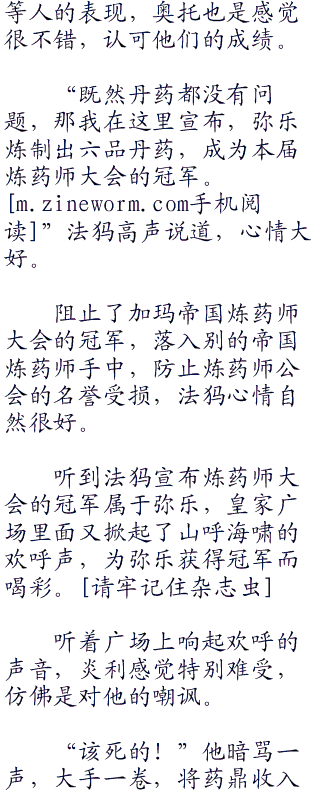 等人的表现，奥托也是感觉
很不错，认可他们的成绩。
“既然丹药都没有问
题，那我在这里宣布，弥乐
炼制出六品丹药，成为本届
炼药师大会的冠军。
[m.zineworm.com手机阅
读]”法犸高声说道，心情大
好。
阻止了加玛帝国炼药师
大会的冠军，落入别的帝国
炼药师手中，防止炼药师公
会的名誉受损，法犸心情自
然很好。
听到法犸宣布炼药师大
会的冠军属于弥乐，皇家广
场里面又掀起了山呼海啸的
欢呼声，为弥乐获得冠军而
喝彩。[请牢记住杂志虫]
听着广场上响起欢呼的
声音，炎利感觉特别难受，
仿佛是对他的嘲讽。
“该死的！”他暗骂一
声，大手一卷，将药鼎收入